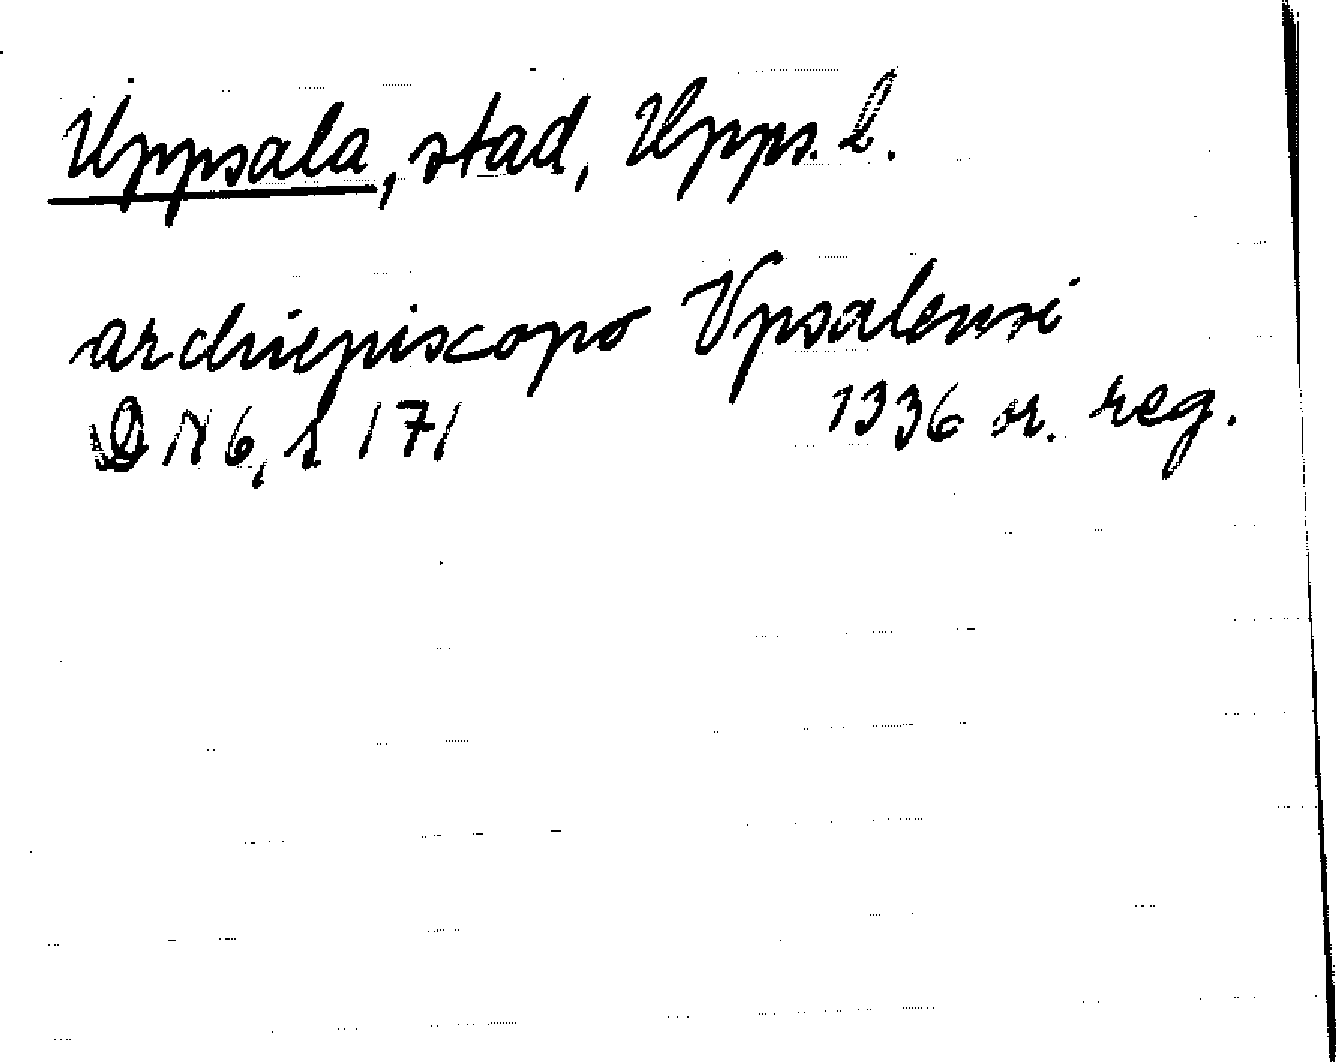 Uppsala, stad, Upps. l.
archiepiscopo Vpsalensi
DN 6, s 171 1336 or. reg.